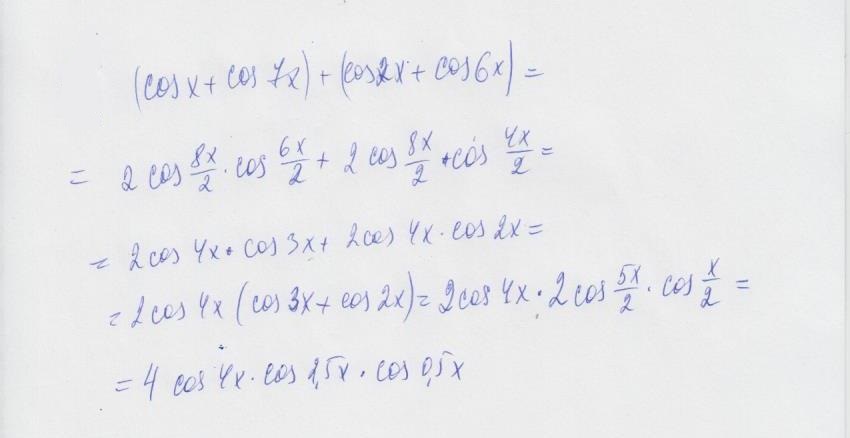 (cos x + cos 7x) + (cos 2x + cos 6x) =
= 2 cos 8x/2 · cos 6x/2 + 2 cos 8x/2 · cos 4x/2 =
= 2 cos 4x · cos 3x + 2 cos 4x · cos 2x =
= 2 cos 4x (cos 3x + cos 2x) = 2 cos 4x · 2 cos 5x/2 · cos x/2 =
= 4 cos 4x · cos 2,5x · cos 0,5x